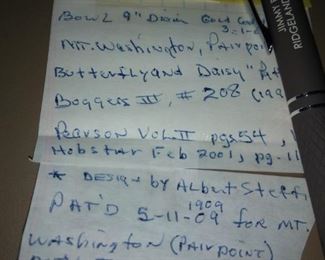 BOWL 9" Diam Gold
MT. Washington, PAIRPOINT
Butterfly and Daisy" PAT
Boggess III, # 208 (199
Pearson Vol. II pgs 54,
Hobstar Feb 2001, pg. 11
* DESIGN by Albert STEFFI
1909
PAT'D 5-11-09 for MT.
WASHINGTON (PAIRPOINT)
JIMMY
RIDGELAND